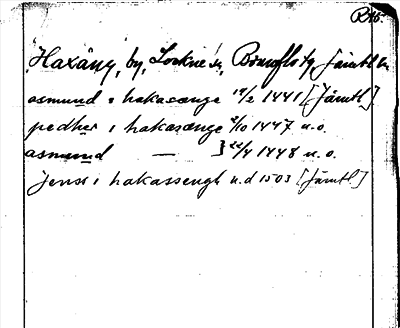 R45.
Haxäng, by, Lockne sn, Brunflo tg, Jämtl. l.
osmund i hakasænge 12/2 1441 [Jämtl]
pedher i hakasænge 2/10 1447 u.o.
asmund — } 22/4 1448 u.o.
Jens i hakassengh u.d 1503 [Jämtl]